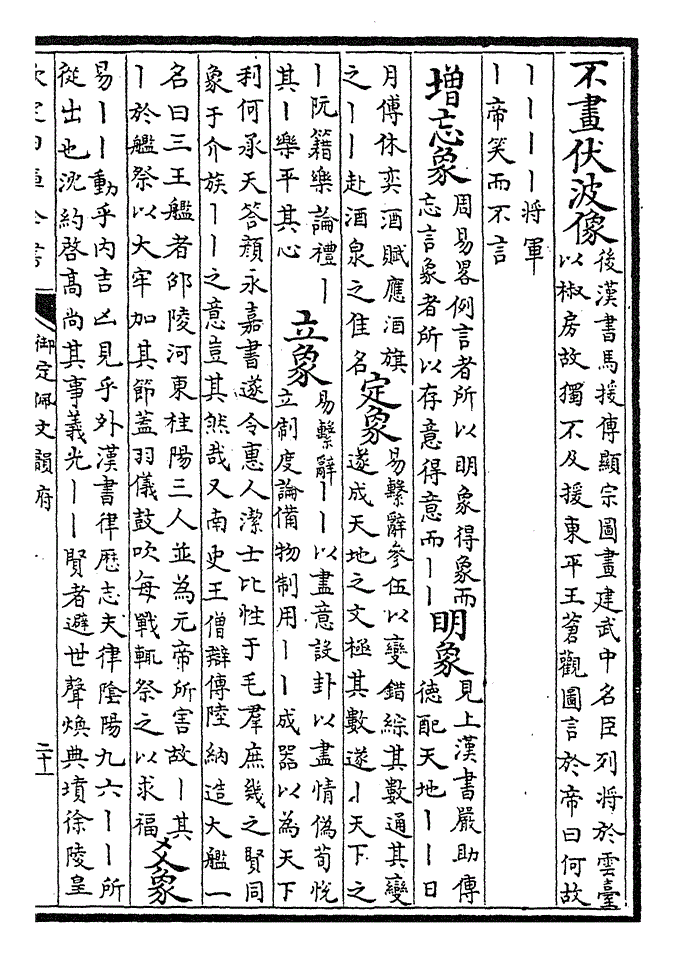 不畫伏波像
後漢書馬援傳顯宗圖畫建武中名臣列將於雲臺
以椒房故獨不及援東平王蒼觀圖言於帝曰何故
丨丨丨丨將軍
丨帝笑而不言
增忘象
周易畧例言者所以明象得象而
忘言象者所以存意得意而丨丨
明象
見上漢書嚴助傳
德配天地丨丨日
月傅休奕酒賦應酒旗
之丨丨赴酒泉之佳名
定象
易繫辭參伍以變錯綜其數通其變
遂成天地之文極其數遂丨天下之
丨阮籍樂論禮丨
其丨樂平其心
立象
易繫辭丨丨以盡意設卦以盡情偽荀悅
立制度論備物制用丨丨成器以為天下
利何承天答顔永嘉書遂令惠人潔士比性于毛羣庶幾之賢同
象于介族丨丨之意豈其然哉又南史王僧辯傳陸納造大艦一
名曰三王艦者邵陵河東桂陽三人並為元帝所害故丨其
丨於艦祭以大牢加其節蓋羽儀鼓吹每戰輒祭之以求福
爻象
易丨丨動乎内吉凶見乎外漢書律厯志夫律陰陽九六丨丨所
從出也沈約啓高尚其事義光丨丨賢者避世聲煥典墳徐陵皇
欽定四庫全書
御定佩文韻府
二十一